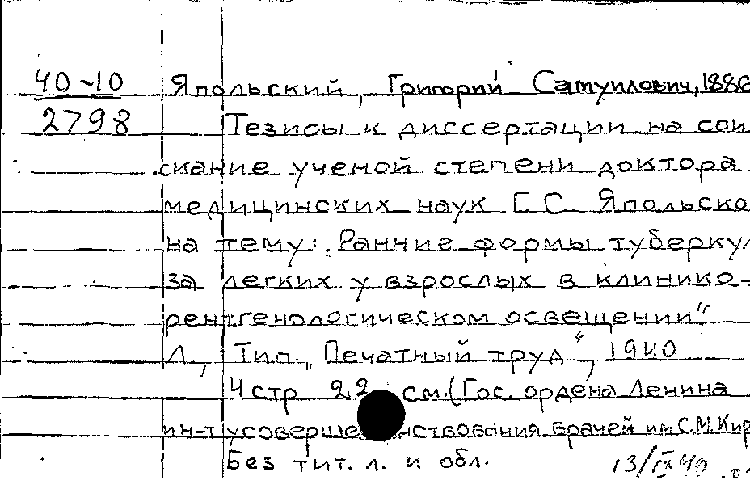 40-10 Япольский, Григорий Самуилович, 1886
2798 Тезисы к диссертации на сои-
скание ученой степени доктора
медицинских наук Г.С. Япольско
на тему: Ранние формы туберкул
за легких у взрослых в клинико-
рентгенологическом освещении"
Л., Тип. „Печатный труд“, 1940
4 стр 22 см. (Гос. ордена Ленина
ин-т усовершенствования врачей им. С.М. Кир
Без тит. л. и обл. 13/IX 40